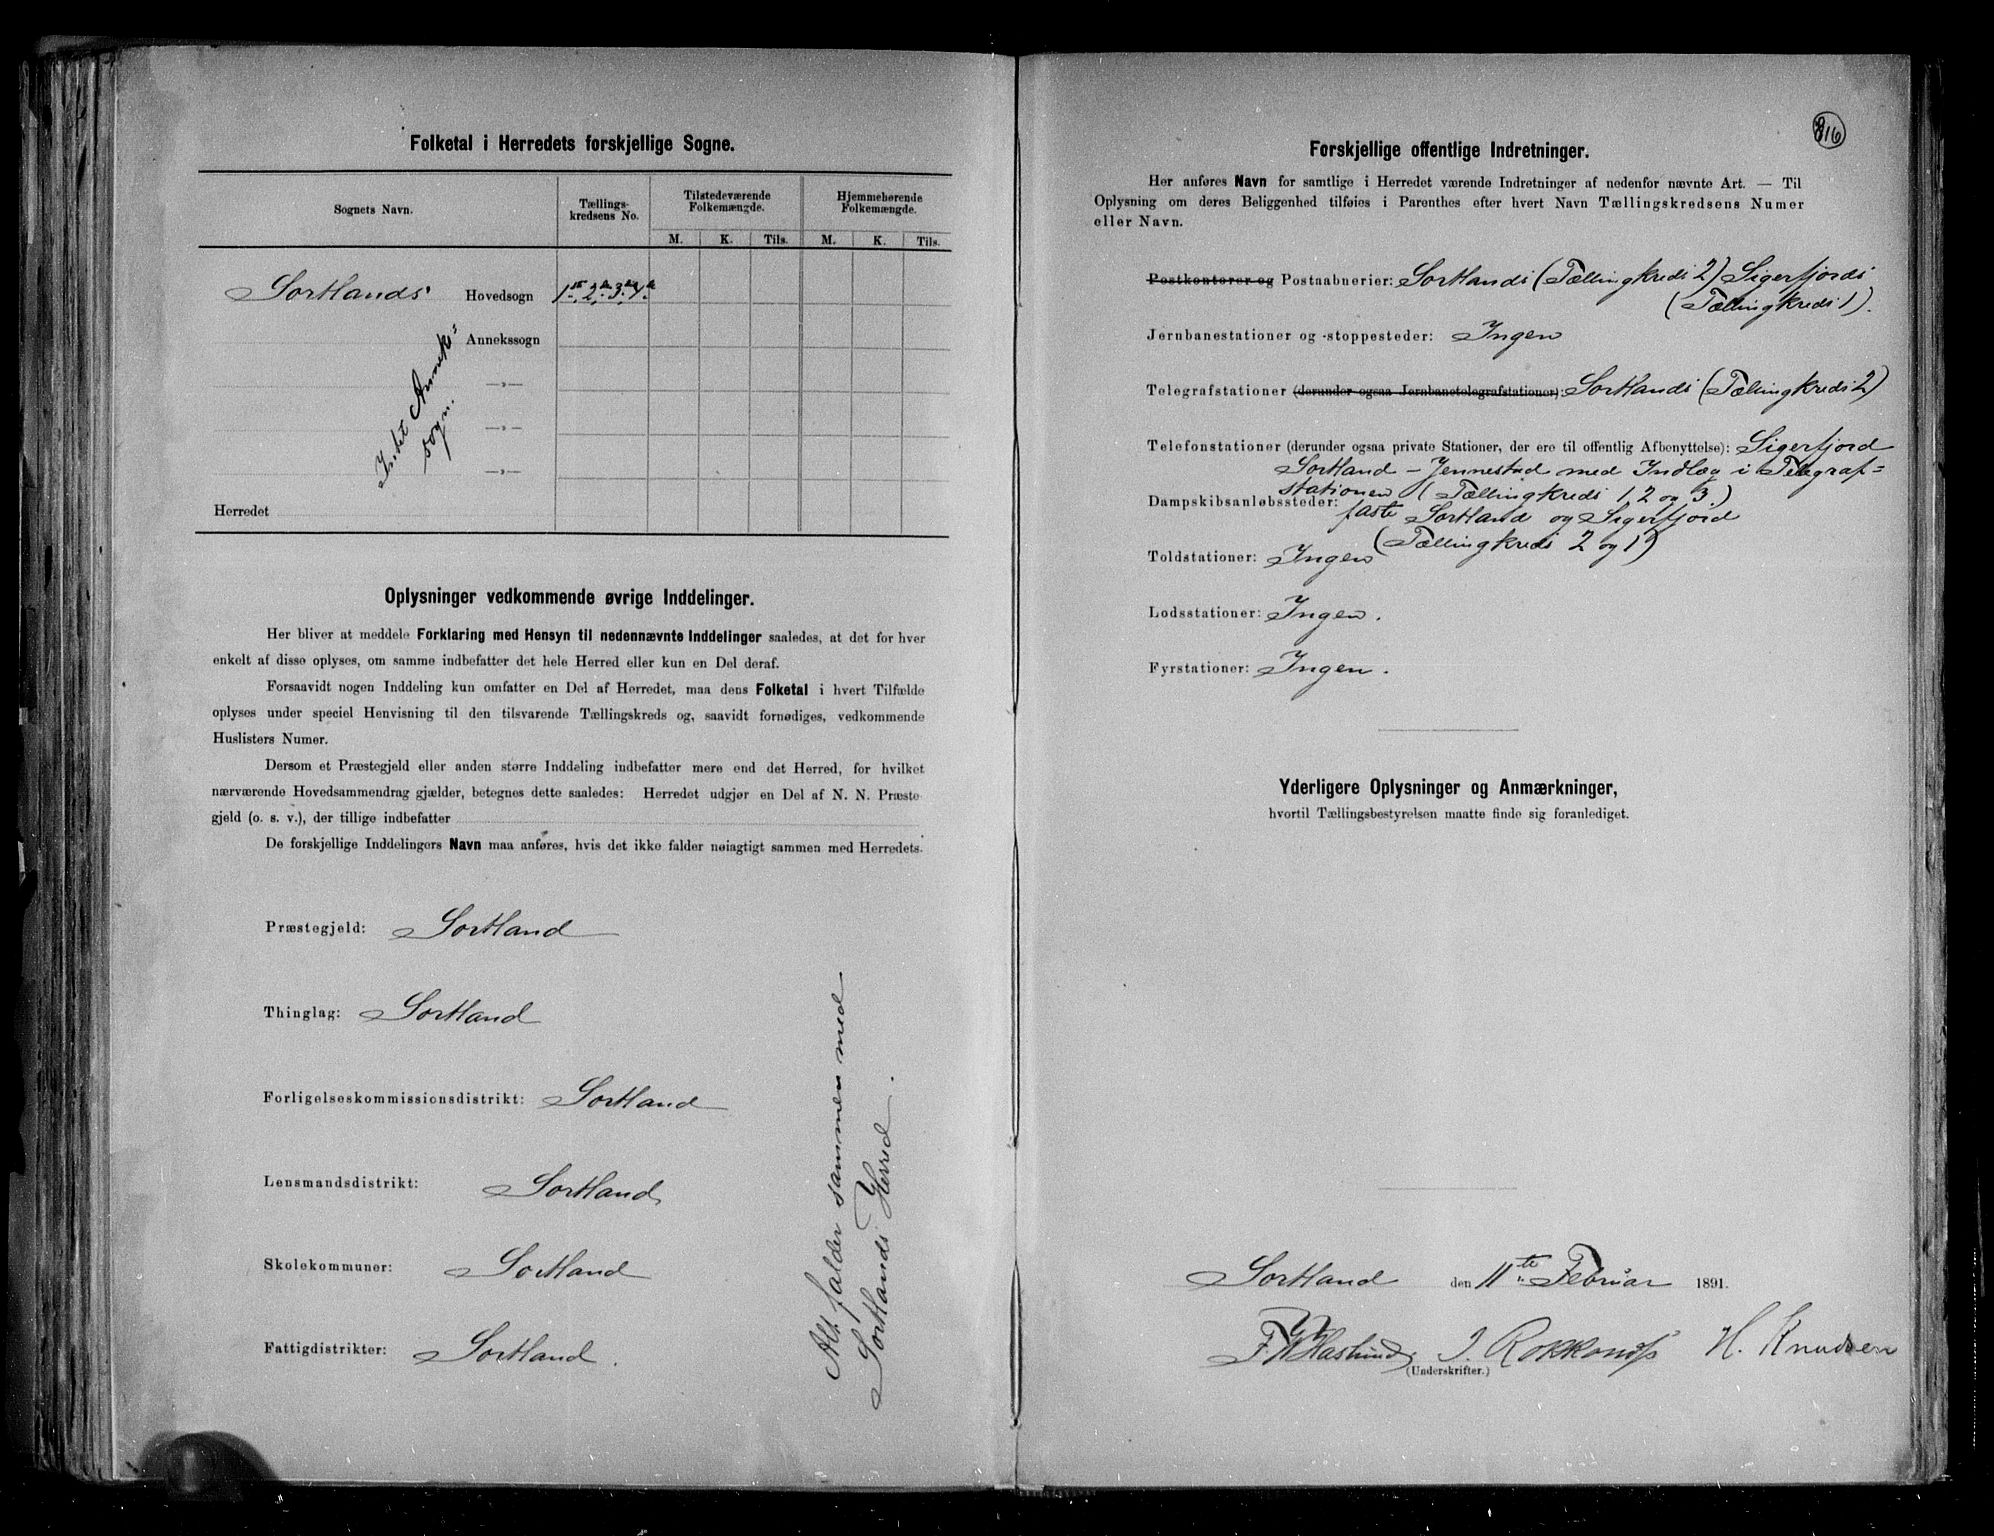 Folketal i Herredets forskjellige Sogne.
Sognets Navn.
Tællings-
kredsens No.
Tilstedeværende
Folkemængde.
Hjemmehørende
Folkemængde.
M. K. Tils. M. K. Tils.
Sortlands Hovedsogn 1ste 2de 3die 4de
Annekssogn
Intet Anneks-
sogn.
—»—
—»—
—»—
Herredet
Oplysninger vedkommende øvrige Inddelinger.
Her bliver at meddele Forklaring med Hensyn til nedennævnte Inddelinger saaledes, at det for hver
enkelt af disse oplyses, om samme indbefatter det hele Herred eller kun en Del deraf.
Forsaavidt nogen Inddeling kun omfatter en Del af Herredet, maa dens Folketal i hvert Tilfælde
oplyses under speciel Henvisning til den tilsvarende Tællingskreds og, saavidt fornødiges, vedkommende
Huslisters Numer.
Dersom et Præstegjeld eller anden større Inddeling indbefatter mere end det Herred, for hvilket
nærværende Hovedsammendrag gjælder, betegnes dette saaledes: Herredet udgjør en Del af N. N. Præste-
gjeld (o. s. v.), der tillige indbefatter
De forskjellige Inddelingers Navn maa anføres, hvis det ikke falder nøiagtigt sammen med Herredets.
Præstegjeld: Sortland
Thinglag: Sortland
Forligelseskommissionsdistrikt: Sortland
Lensmandsdistrikt: Sortland
Skolekommuner: Sortland
Fattigdistrikter: Sortland.
Alt falder sammen med
Sortlands Herred.
816
Forskjellige offentlige Indretninger.
Her anføres Navn for samtlige i Herredet værende Indretninger af nedenfor nævnte Art. — Til
Oplysning om deres Beliggenhed tilføies i Parenthes efter hvert Navn Tællingskredsens Numer
eller Navn.
Postkontorer og Postaabnerier: Sortlands (Tællingkreds 2) Sigerfjords
(Tællingkreds 1).
Jernbanestationer og -stoppesteder: Ingen
Telegrafstationer (derunder ogsaa Jernbanetelegrafstationer): Sortlands (Tællingkreds 2)
Telefonstationer (derunder ogsaa private Stationer, der ere til offentlig Afbenyttelse): Sigerfjord
Sortland – Jennestad med Indlæg i Telegraf=
stationen (Tællingkreds 1, 2 og 3.)
Dampskibsanløbssteder: faste Sortland og Sigerfjord
(Tællingkreds 2 og 1)
Toldstationer: Ingen
Lodsstationer: Ingen.
Fyrstationer: Ingen.
Yderligere Oplysninger og Anmærkninger,
hvortil Tællingsbestyrelsen maatte finde sig foranlediget.
Sortland den 11te Februar 1891.
Haslund H. Knudsen
(Underskrifter.)